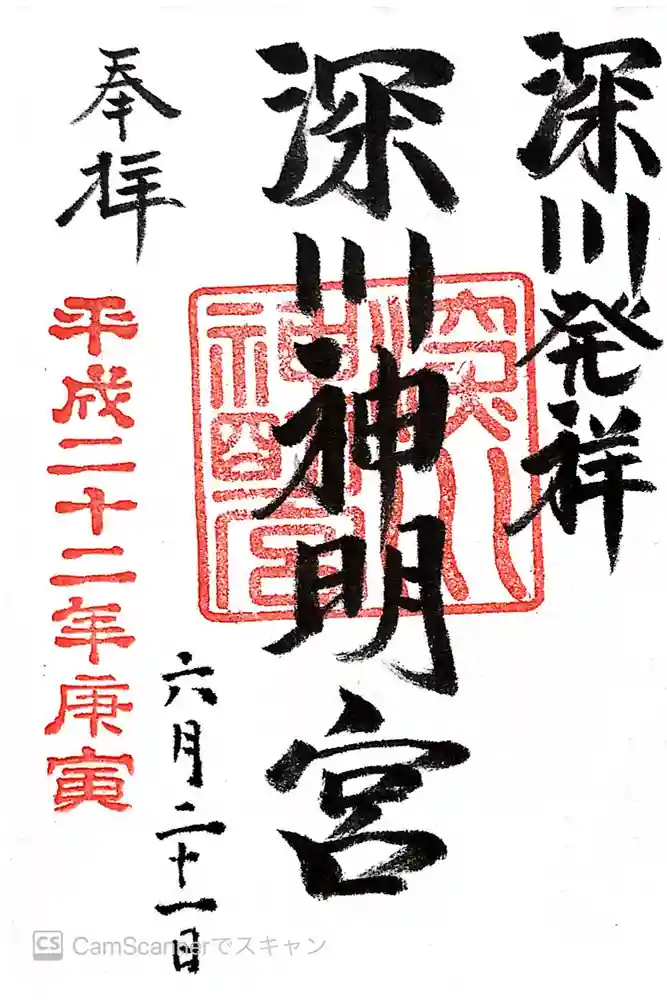 深川発祥
深川神明宮
深川神明宮
奉拝
平成二十二年庚寅
六月二十一日
CS CamScannerでスキャン